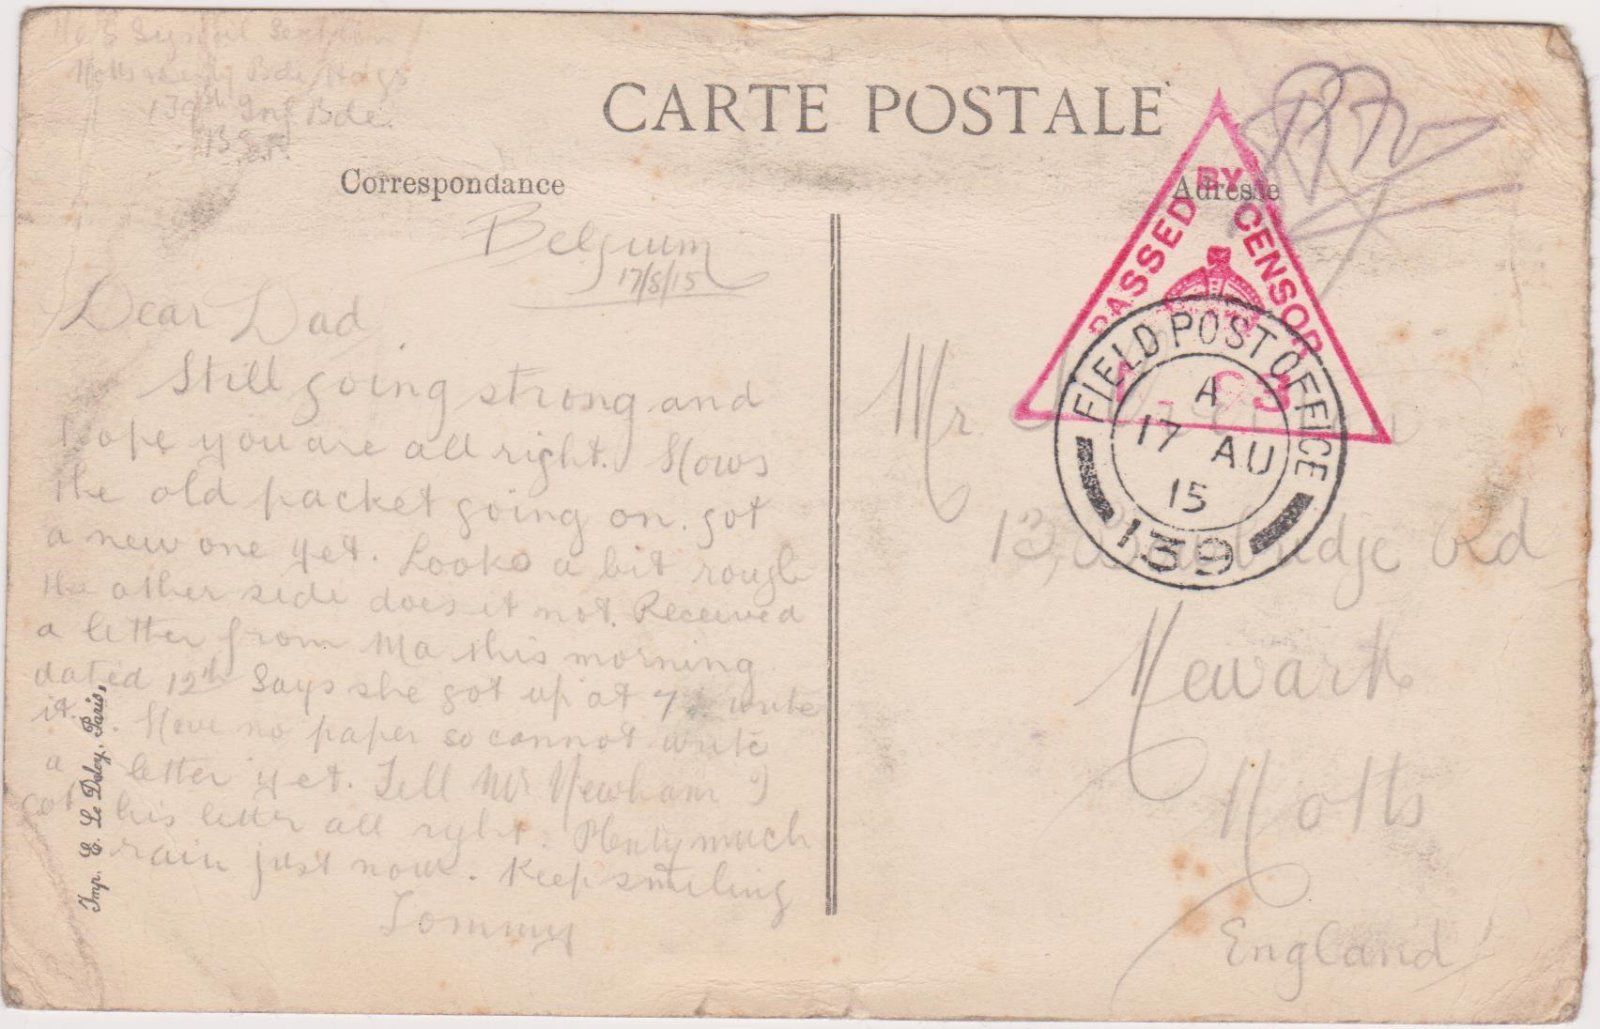 No 5 Signal Section
Notts & Derby Bde Hdqs
139th Inf Bde.
B.E.F.
CARTE POSTALE
Correspondance
Adresse
PASSED BY CENSOR
FIELD POST OFFICE
A
17 AU
15
139
Belgium
17/8/15
Dear Dad
Still going strong and
hope you are all right. Hows
the old packet going on. got
a new one yet. Looks a bit rough
the other side does it not. Received
a letter from Ma this morning
dated 12th Says she got up at 7 to write
it. Have no paper so cannot write
a letter yet. Tell Mr Newham I
got his letter all right. Plenty much
rain just now. Keep smiling
Tommy
Mr.
13, Rd
Newark
Notts
England
Imp. E. Le Deley, Paris,